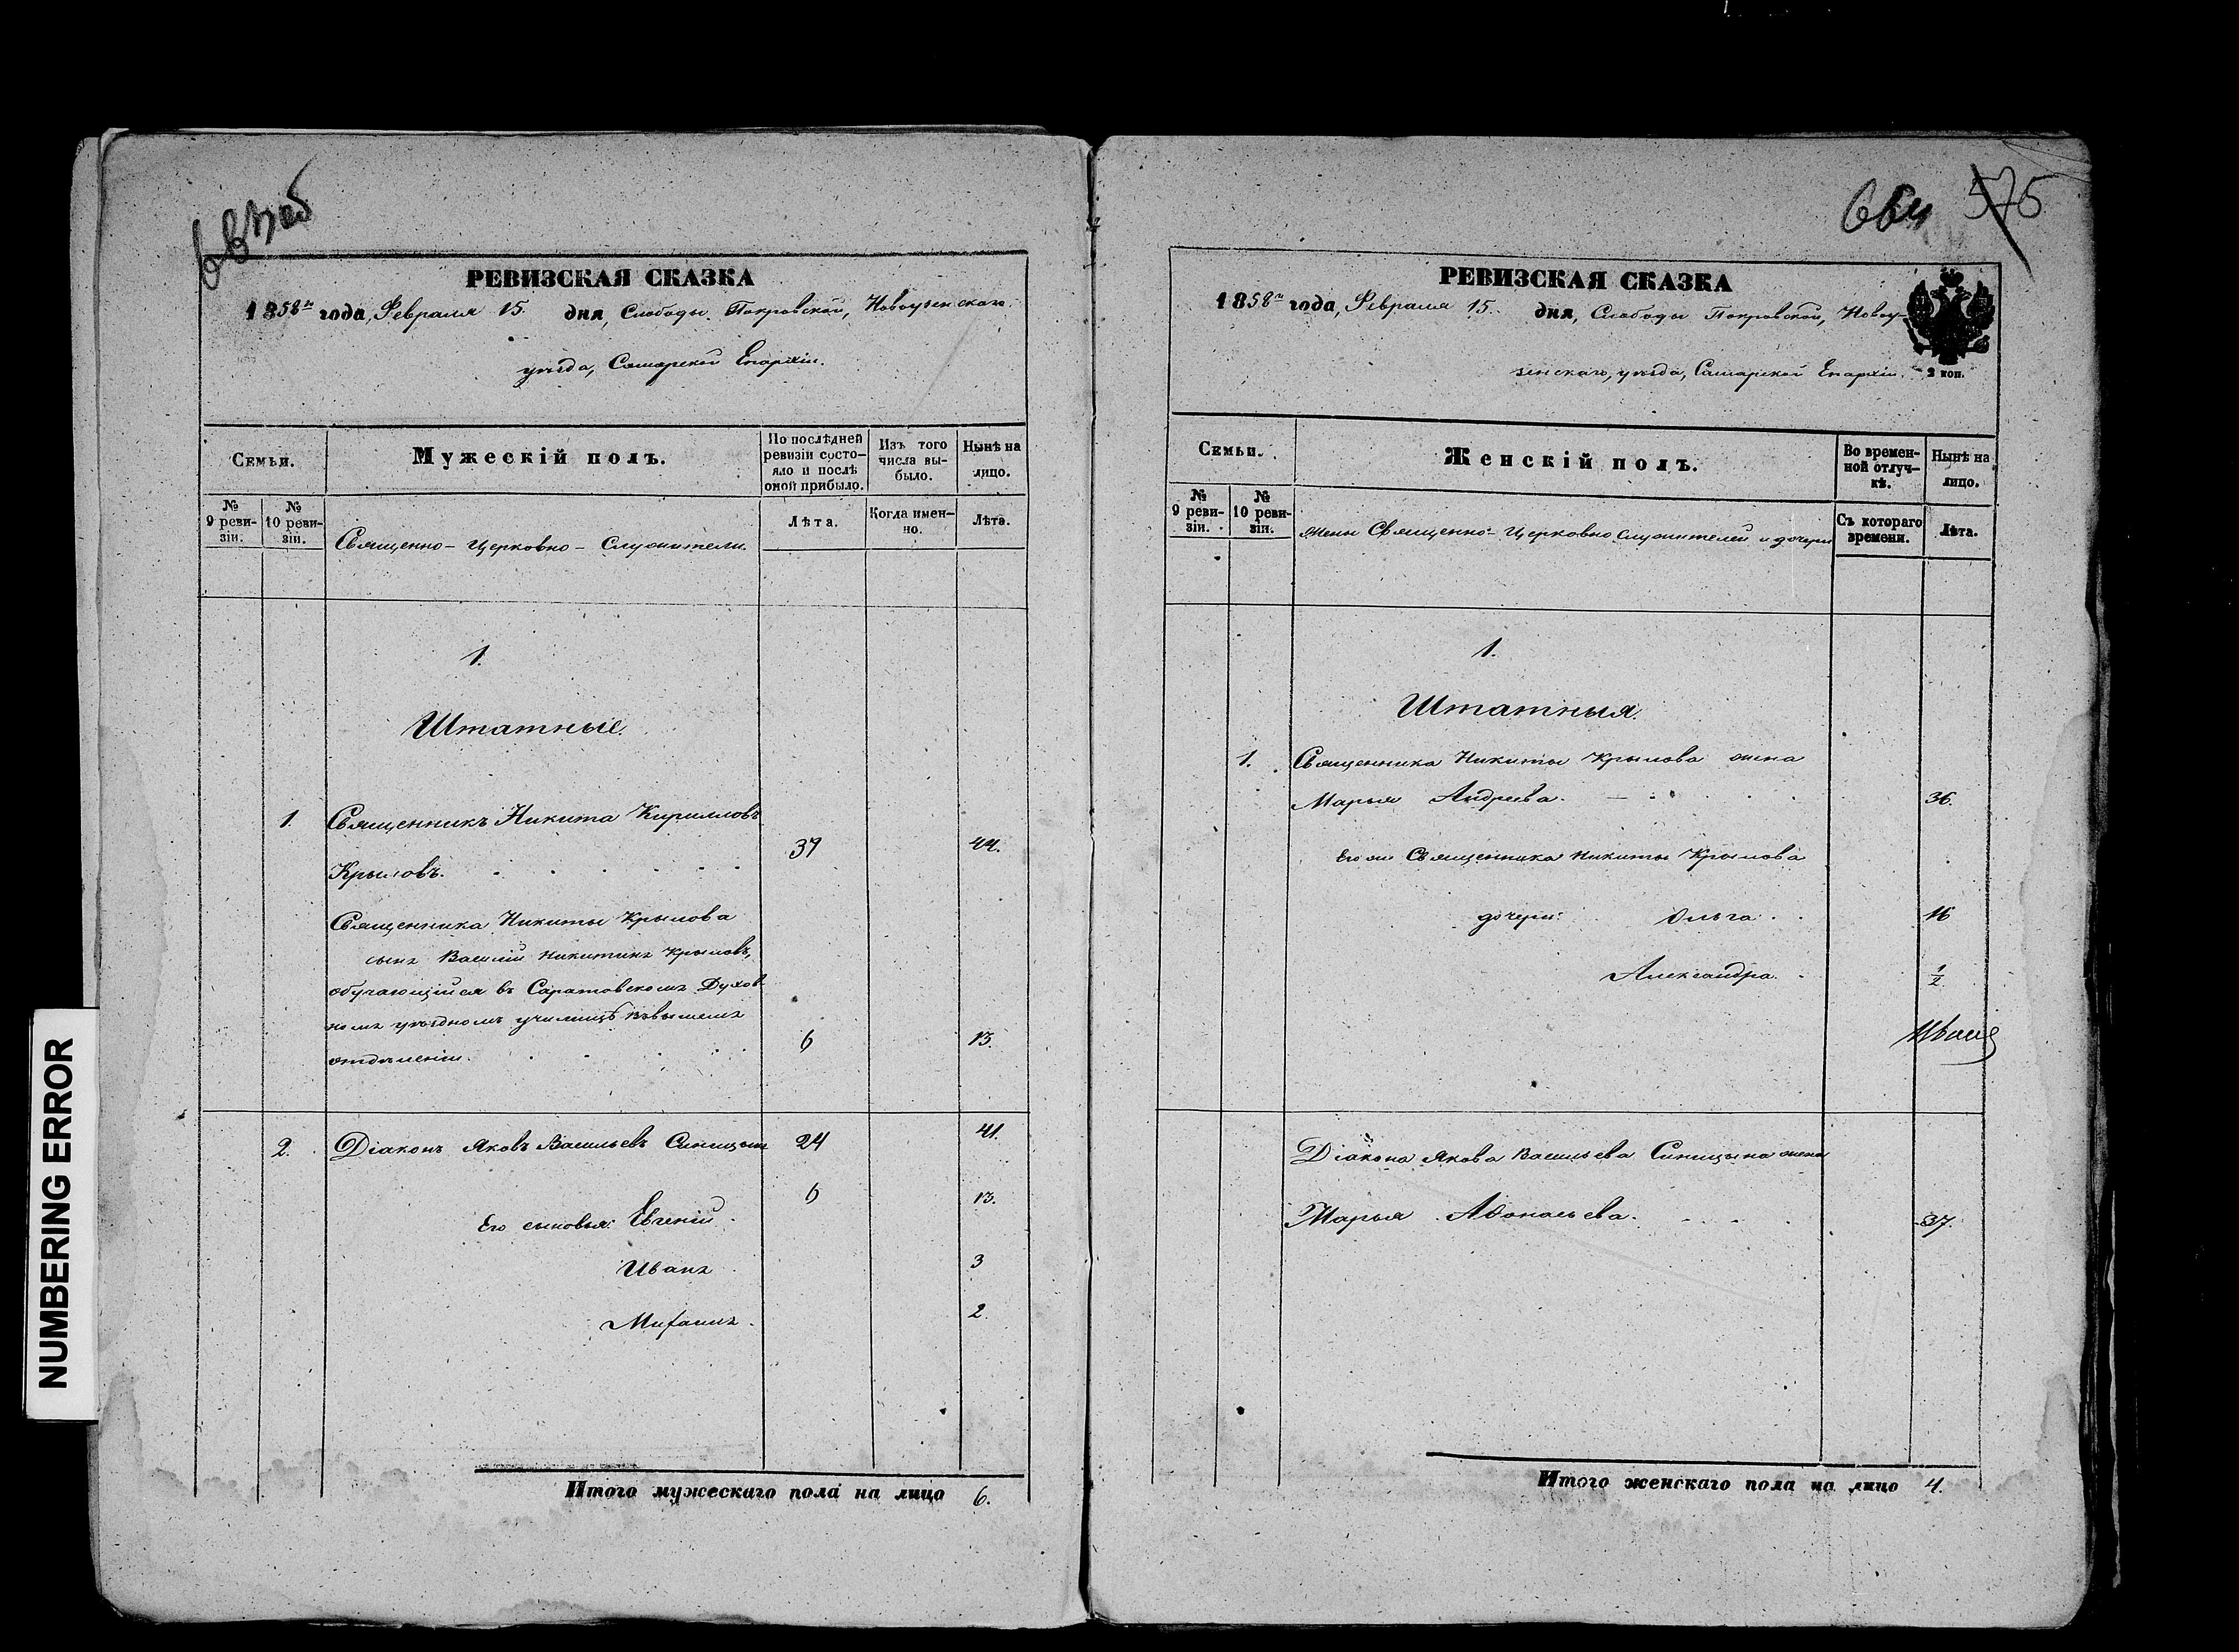 NUMBERING ERROR
РЕВИЗСКАЯ СКАЗКА
1858го года, Февраля 15. дня, Слободы Покровской, Новоузенскаго
уѣзда, Самарской Епархіи.
Семьи.
Мужескій полъ.
По послѣдней ревизіи состо-
яло и послѣ
оной прибыло.
Изъ того
числа вы-
было.
Нынѣ на
лицо.
№
9 реви-
зіи.
№
10 реви-
зіи.
Священно-Церковно-Служители.
Лѣта.
Когда имен-
но.
Лѣта.
1.
Штатные.
1. Священникъ Никита Кирилловъ
Крыловъ. 37 44.
Священника Никиты Крылова
сынъ Василій Никитинъ Крыловъ,
обучающійся въ Саратовскомъ Духов-
номъ уѣздномъ училищѣ въ высшемъ
отдѣленіи. 6 13.
2. Діаконъ Яковъ Васильевъ Синицынъ 24 41.
Его сыновья: Евгеній. 6 13.
Иванъ. 3
Михаилъ. 2.
Итого мужескаго пола на лицо 6.
664 575
РЕВИЗСКАЯ СКАЗКА
1858го года, Февраля 15. дня, Слободы Покровской, Новоу-
зенскаго, уѣзда, Самарской Епархіи.
2 коп.
Семьи.
Женскій полъ.
Во времен-
ной отлуч-
кѣ.
Нынѣ на
лицо.
№
9 реви-
зіи.
№
10 реви-
зіи.
Жены Священно-Церковно Служителей и дочери
Съ котораго
времени.
Лѣта.
1.
Штатныя.
1. Священника Никиты Крылова жена
Марья Андреева. 36.
Его же Священника Никиты Крылова
дочери: Ольга. 16
Александра. 1/2
Діакона Якова Васильева Синицына жена
Марья Аѳонасьева. 37.
Итого женскаго пола на лицо 4.